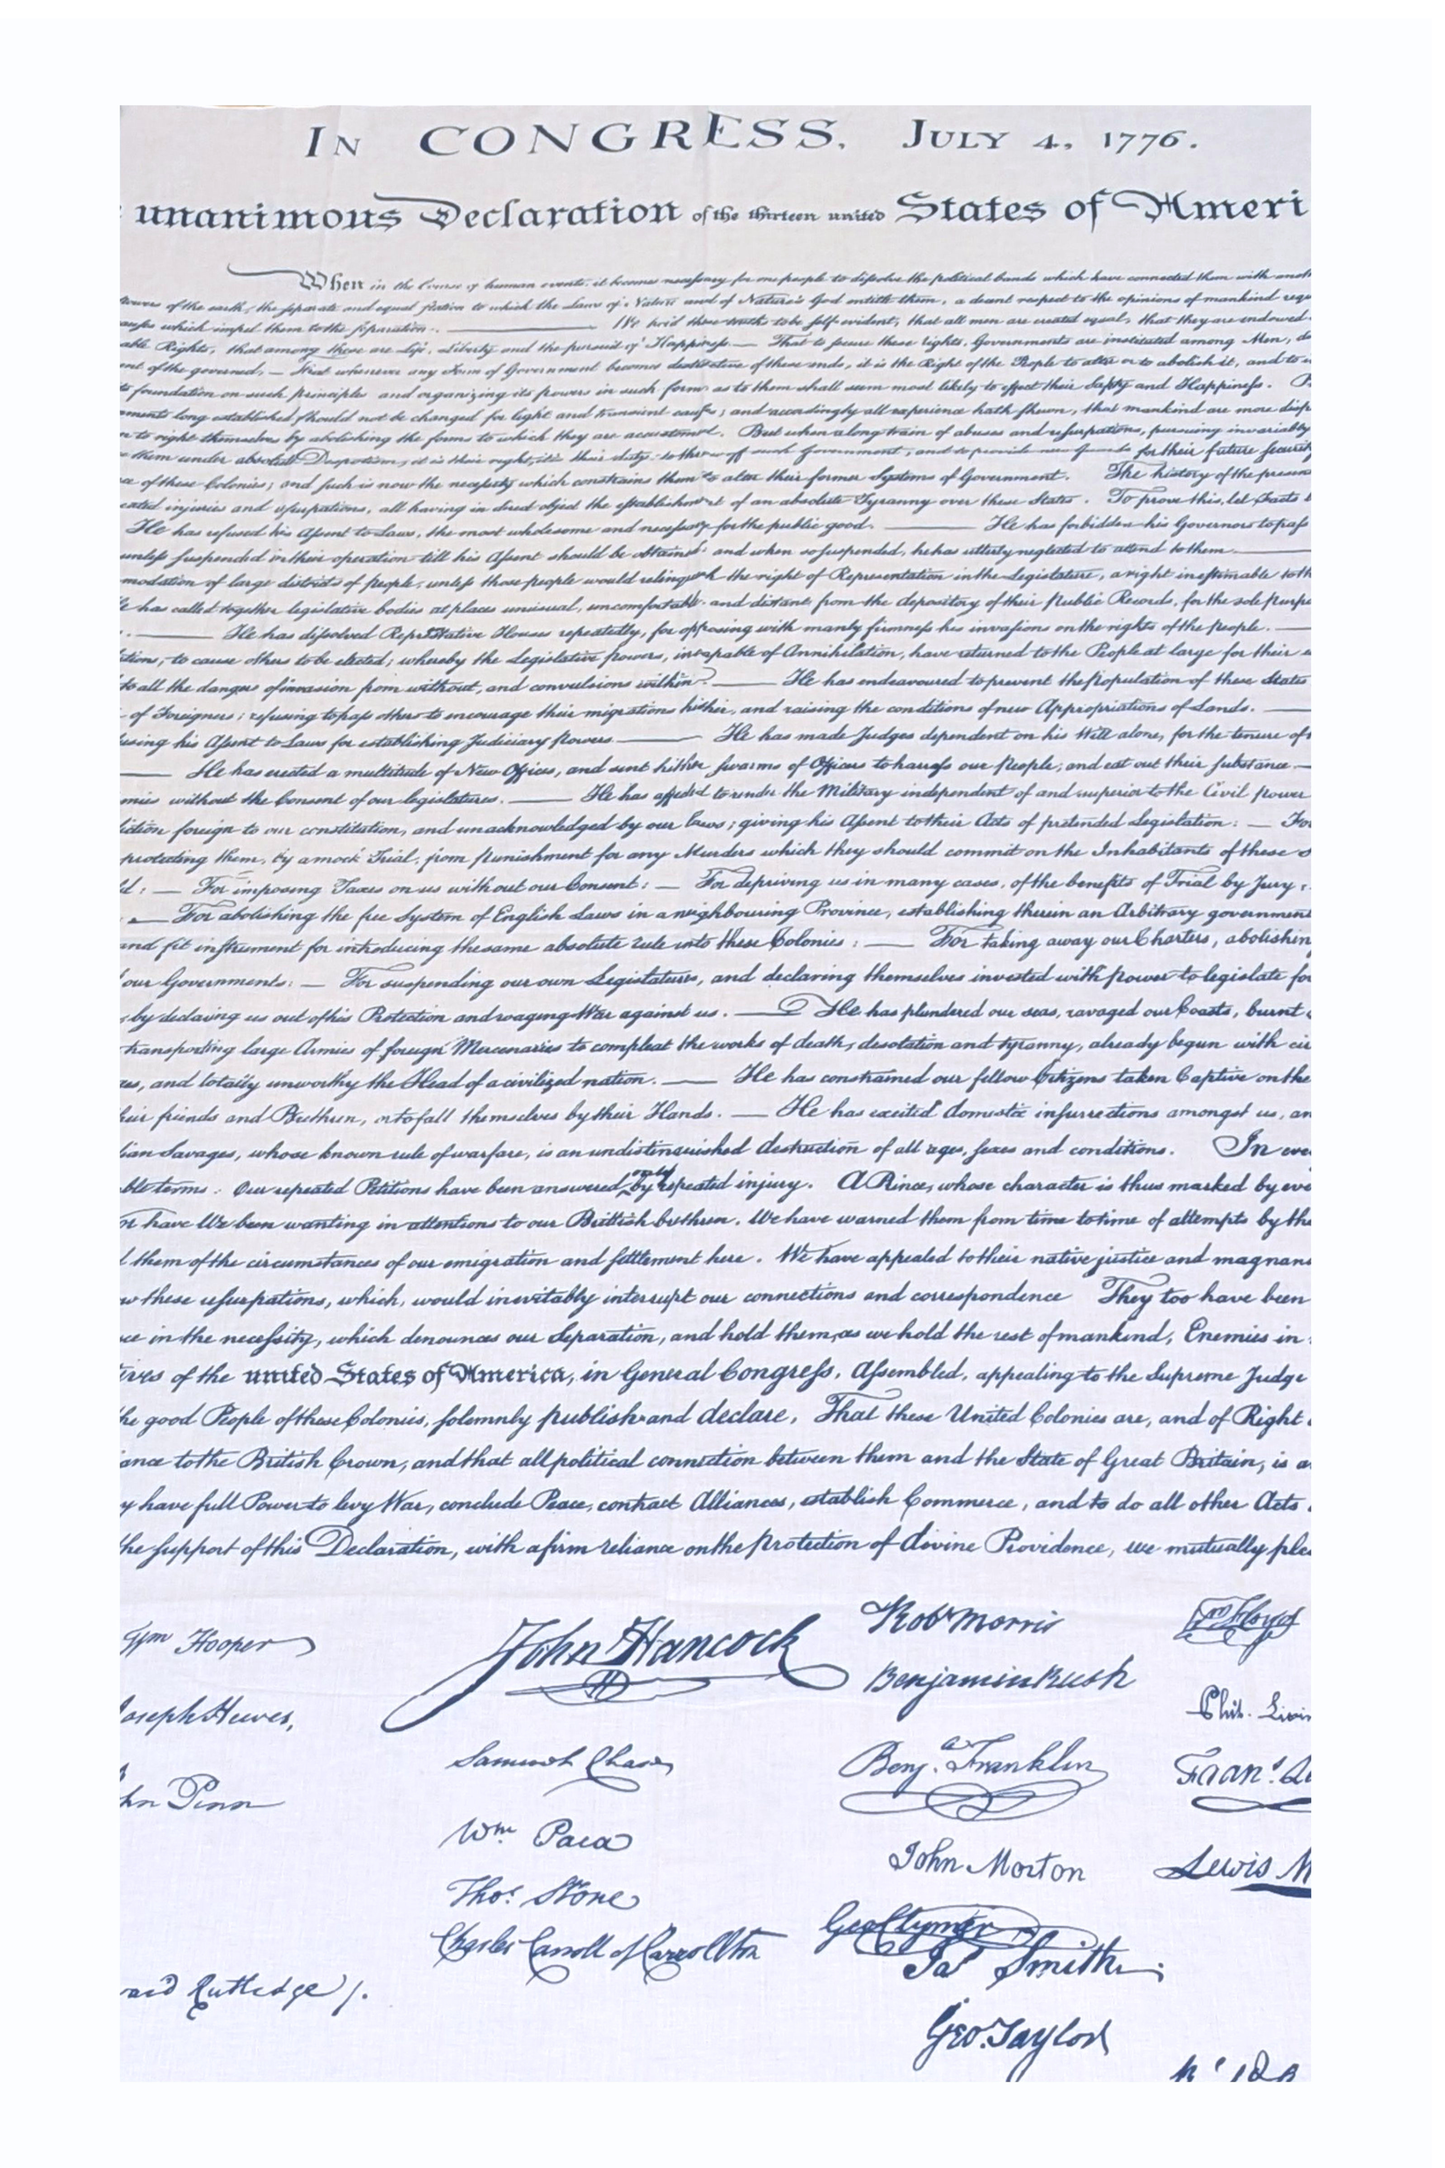 IN CONGRESS, JULY 4, 1776.
unanimous Declaration of the thirteen united States of Ameri
When in the Course of human events, it becomes necessary for one people to dissolve the political bands which have connected them with anoth
Powers of the earth, the separate and equal station to which the Laws of Nature and of Nature's God entitle them, a decent respect to the opinions of mankind requ
auses which impel them to the separation. We hold these truths to be self-evident, that all men are created equal, that they are endowed
able Rights, that among these are Life, Liberty and the pursuit of Happiness.— That to secure these rights, Governments are instituted among Men, d
ent of the governed, — That whenever any Form of Government becomes destructive of these ends, it is the Right of the People to alter or to abolish it, and to
foundation on such principles and organizing its powers in such form, as to them shall seem most likely to effect their Safety and Happiness. P
nments long established should not be changed for light and transient causes; and accordingly all experience hath shewn, that mankind are more disp
to right themselves by abolishing the forms to which they are accustomed. But when a long train of abuses and usurpations, pursuing invariably
them under absolute Despotism, it is their right, it is their duty, to throw off such Government, and to provide new Guards for their future security
ce of these Colonies; and such is now the necessity which constrains them to alter their former Systems of Government. The history of the presen
eated injuries and usurpations, all having in direct object the establishment of an absolute Tyranny over these States. To prove this, let Facts
He has refused his Assent to Laws, the most wholesome and necessary for the public good. He has forbidden his Governors to pass
unless suspended in their operation till his Assent should be obtained; and when so suspended, he has utterly neglected to attend to them.
modation of large districts of people, unless those people would relinquish the right of Representation in the Legislature, a right inestimable to th
He has called together legislative bodies at places unusual, uncomfortable, and distant from the depository of their Public Records, for the sole purpo
He has dissolved Representative Houses repeatedly, for opposing with manly firmness his invasions on the rights of the people.
tions, to cause others to be elected; whereby the Legislative powers, incapable of Annihilation, have returned to the People at large for their
to all the dangers of invasion from without, and convulsions within. He has endeavoured to prevent the population of these States
of Foreigners; refusing to pass others to encourage their migrations hither, and raising the conditions of new Appropriations of Lands.
using his Assent to Laws for establishing Judiciary powers. He has made Judges dependent on his Will alone, for the tenure of
He has erected a multitude of New Offices, and sent hither swarms of Officers to harrass our People, and eat out their substance.
mies without the Consent of our legislatures. He has affected to render the Military independent of and superior to the Civil power
iction foreign to our constitution, and unacknowledged by our laws; giving his Assent to their Acts of pretended Legislation: — For
protecting them, by a mock Trial, from punishment for any Murders which they should commit on the Inhabitants of these S
ld: — For imposing Taxes on us without our Consent: — For depriving us in many cases, of the benefits of Trial by Jury:
— For abolishing the free System of English Laws in a neighbouring Province, establishing therein an Arbitrary government
and fit instrument for introducing the same absolute rule into these Colonies: — For taking away our Charters, abolishin
our Governments: — For suspending our own Legislatures, and declaring themselves invested with power to legislate for
by declaring us out of his Protection and waging War against us. — He has plundered our seas, ravaged our Coasts, burnt
transporting large Armies of foreign Mercenaries to compleat the works of death, desolation and tyranny, already begun with cir
es, and totally unworthy the Head of a civilized nation. — He has constrained our fellow Citizens taken Captive on the
heir friends and Brethren, or to fall themselves by their Hands. — He has excited domestic insurrections amongst us, an
ian Savages, whose known rule of warfare, is an undistinguished destruction of all ages, sexes and conditions. In eve
ble terms: Our repeated Petitions have been answered only by repeated injury. A Prince, whose character is thus marked by eve
Nor have We been wanting in attentions to our Brittish brethren. We have warned them from time to time of attempts by the
d them of the circumstances of our emigration and settlement here. We have appealed to their native justice and magnan
ow these usurpations, which, would inevitably interrupt our connections and correspondence They too have been
ce in the necessity, which denounces our Separation, and hold them, as we hold the rest of mankind, Enemies in
tives of the united States of America, in General Congress, Assembled, appealing to the Supreme Judge
the good People of these Colonies, solemnly publish and declare, That these United Colonies are, and of Right
iance to the British Crown, and that all political connection between them and the State of Great Britain, is a
y have full Power to levy War, conclude Peace, contract Alliances, establish Commerce, and to do all other Acts
he support of this Declaration, with a firm reliance on the protection of divine Providence, we mutually ple
Wm Hooper
John Hancock
Robt Morris
Wm Floyd
Joseph Hewes,
Benjamin Rush
Phil. Livin
Samuel Chase
Benja. Franklin
Frans. Le
hn Penn
Wm. Paca
John Morton
Lewis M
Thos. Stone
Geo Clymer
Charles Carroll of Carrollton
Jas. Smith
ward Rutledge /.
Geo. Taylor